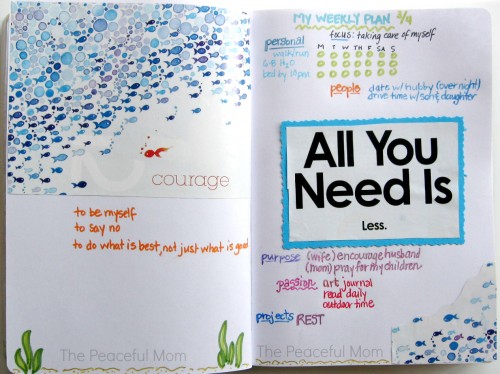 courage
to be myself
to say no
to do what is best, not just what is good
The Peaceful Mom
MY WEEKLY PLAN 2/9
focus: taking care of myself
personal
M T W TH F SA S
walk/run
6-8 H2O
bed by 10pm
people
date w/ hubby (over night)
drive time w/ son, daughter
All You
Need Is
Less.
purpose
(wife) encourage husband
(mom) pray for my children
passion
art journal
read daily
outdoor time
projects REST
The Peaceful Mom